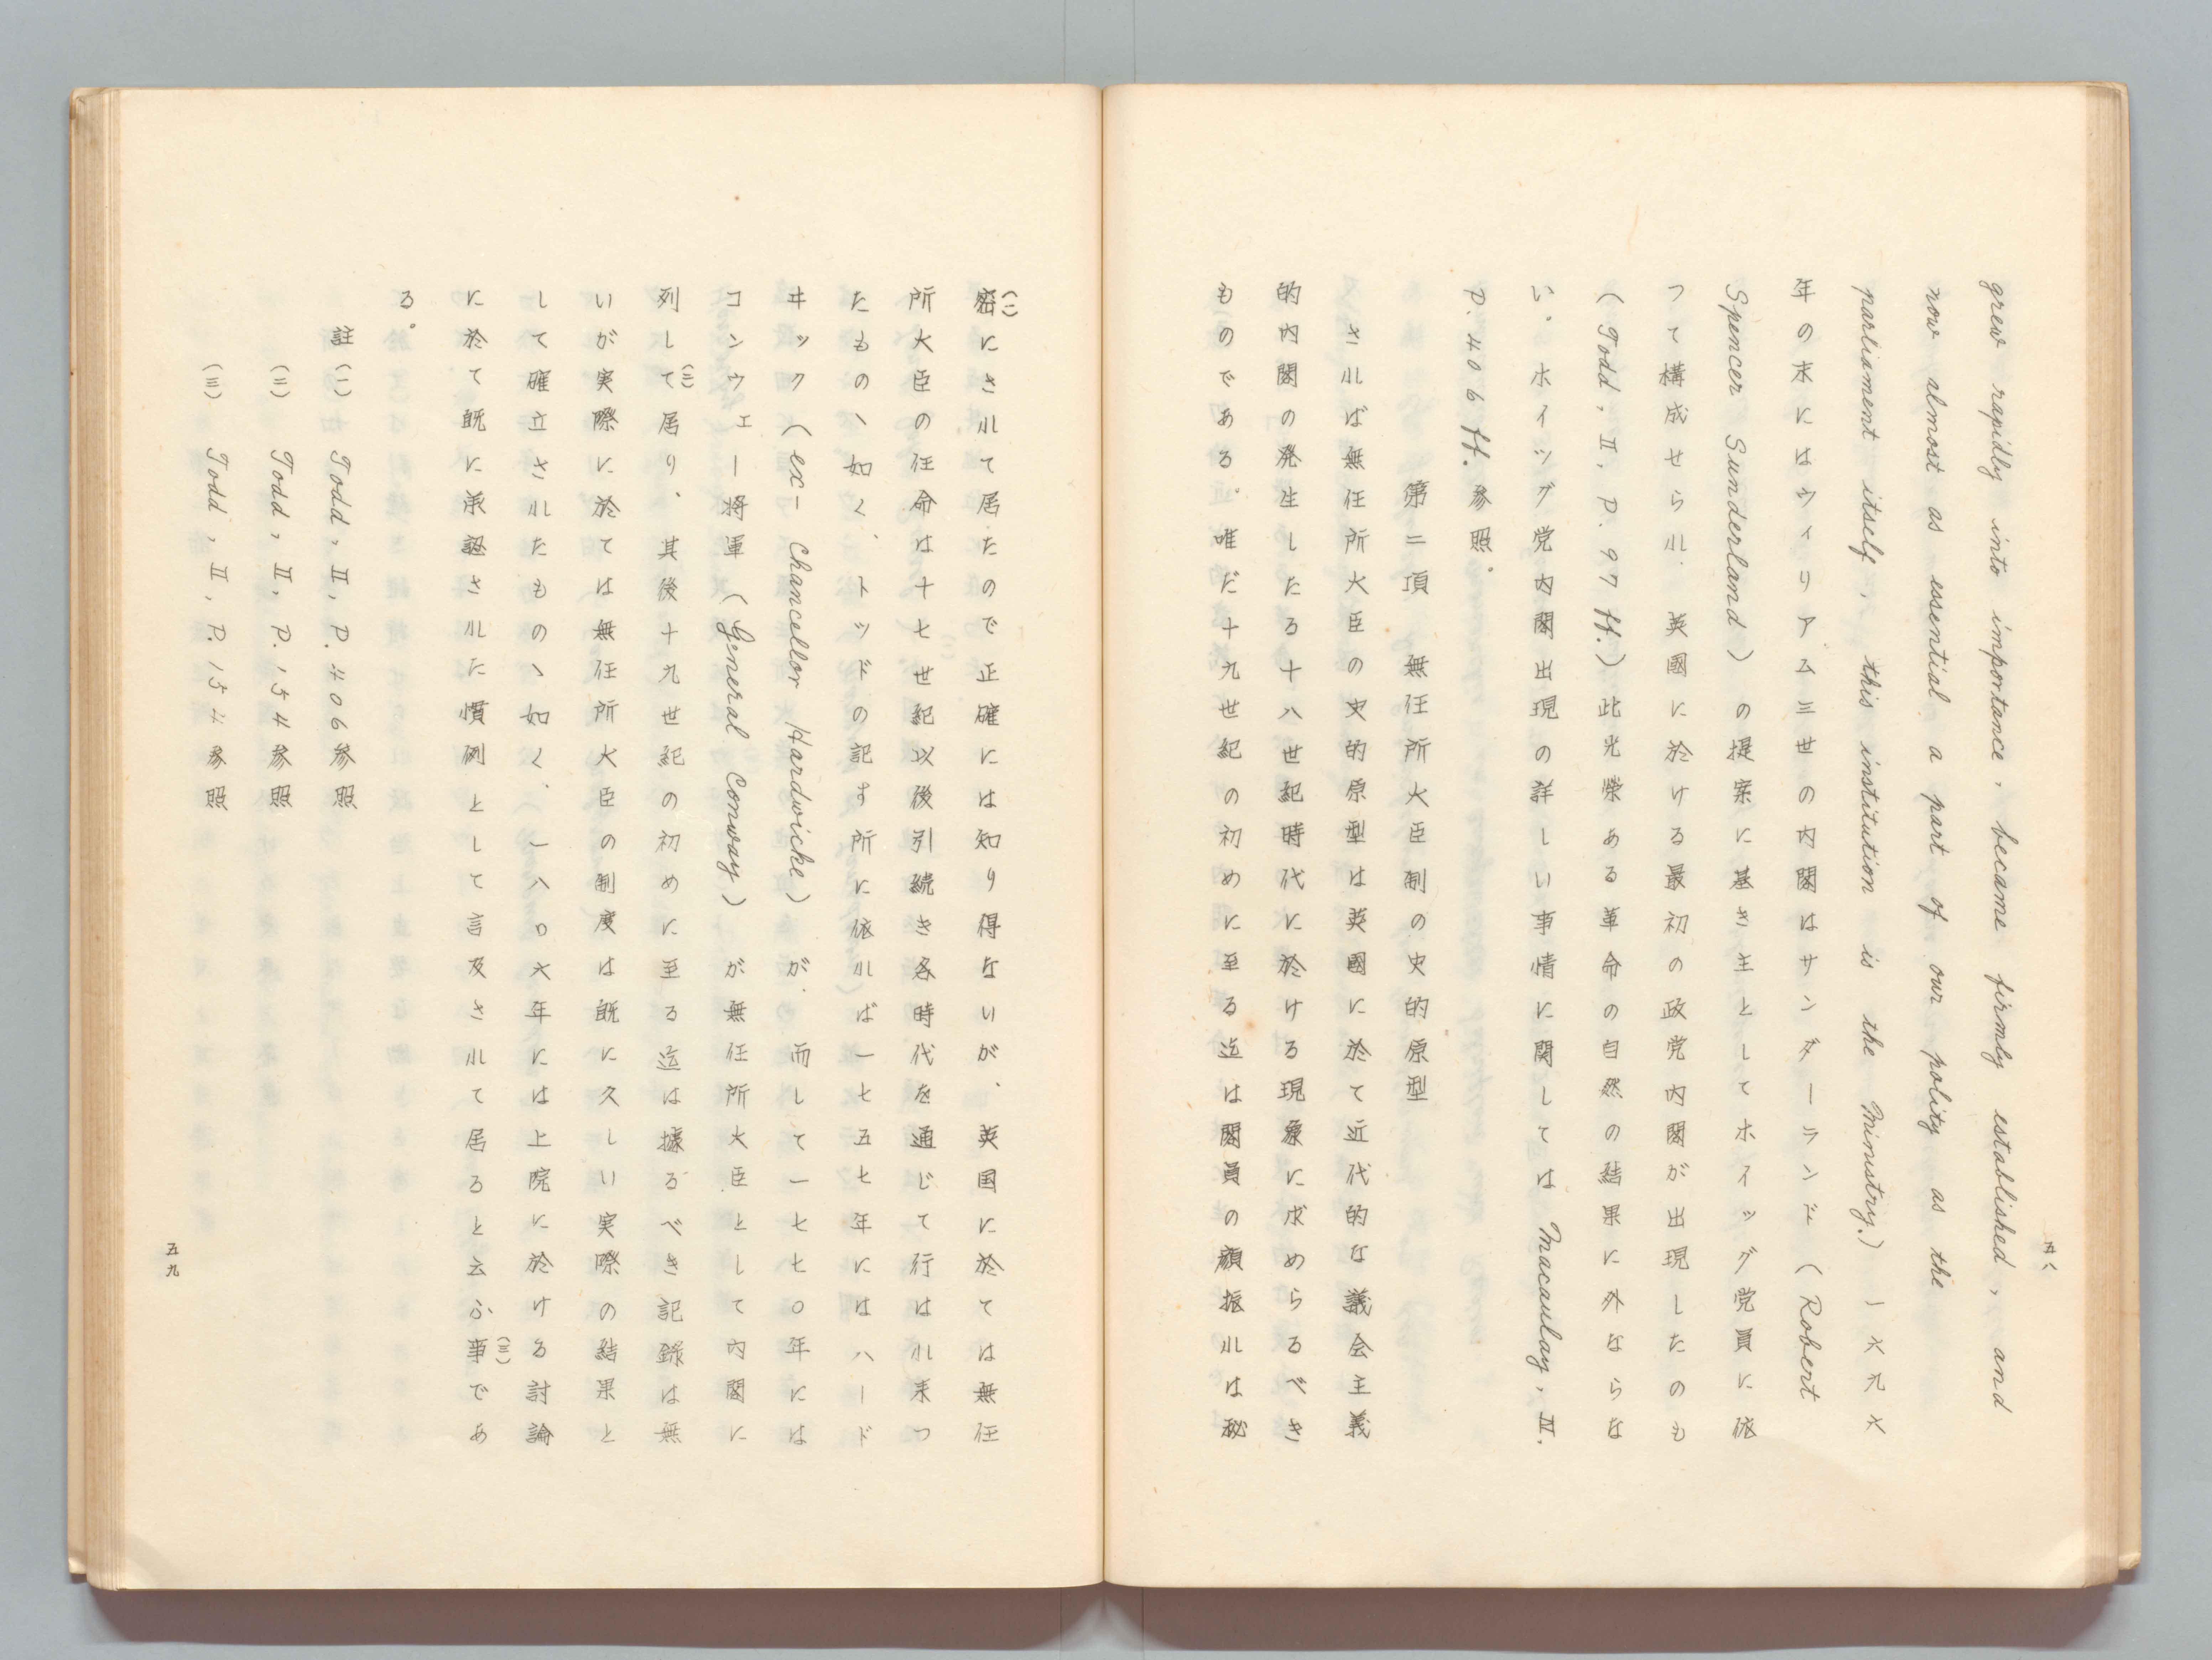 五八
grew rapidly into importance, became firmly established, and
now almost as essential a part of our polity as the
parliament itself, this institution is the Ministry.) 一六九六
年の末にはウィリアム三世の内閣はサンダーランド (Robert
Spencer Sunderland) の提案に基き主としてホイッグ党員に依
つて構成せられ、英國に於ける最初の政党内閣が出現したのも
(Todd, II, P. 97 ff.) 此光榮ある革命の自然の結果に外ならな
い。ホイッグ党内閣出現の詳しい事情に関しては Macaulay, IV.
P. 406 ff. 参照。
第二項 無任所大臣制の史的原型
されば無任所大臣の史的原型は英國に於て近代的な議会主義
的内閣の発生したる十八世紀時代に於ける現象に求めらるべき
ものである。唯だ十九世紀の初めに至る迄は閣員の顔振れは秘
密(一)にされて居たので正確には知り得ないが、英国に於ては無任
所大臣の任命は十七世紀以後引続き各時代を通じて行はれ来つ
たものゝ如く、トッドの記す所に依れば一七五七年にはハード
ヰック (ex-Chancellor Hardwicke) が、而して一七七〇年には
コンウェー将軍 (General Conway) が無任所大臣として内閣に
列して(二)居り、其後十九世紀の初めに至る迄は據るべき記録は無
いが実際に於ては無任所大臣の制度は既に久しい実際の結果と
して確立されたものゝ如く、一八〇六年には上院に於ける討論
に於て既に承認された慣例として言及されて居ると云ふ事(三)であ
る。
註 (一) Todd, II, P. 406 参照
(二) Todd, II, P. 154 参照
(三) Todd, II, P. 154 参照
五九